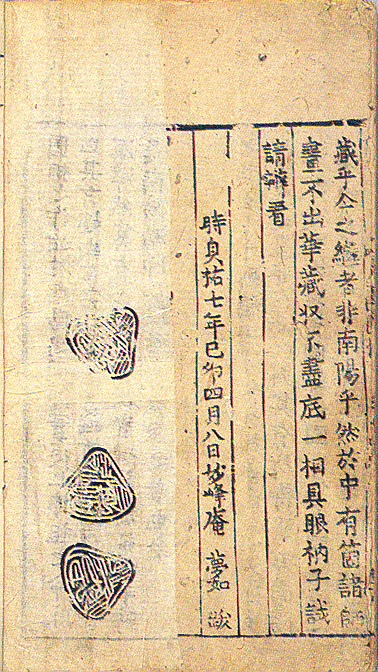 藏乎仝之継者非南陽乎然於中有箇諸師
畫不出華藏収不盡底一相具眼衲子試
請辨看
時貞祐七年己卯四月八日妙峰庵 夢如 跋